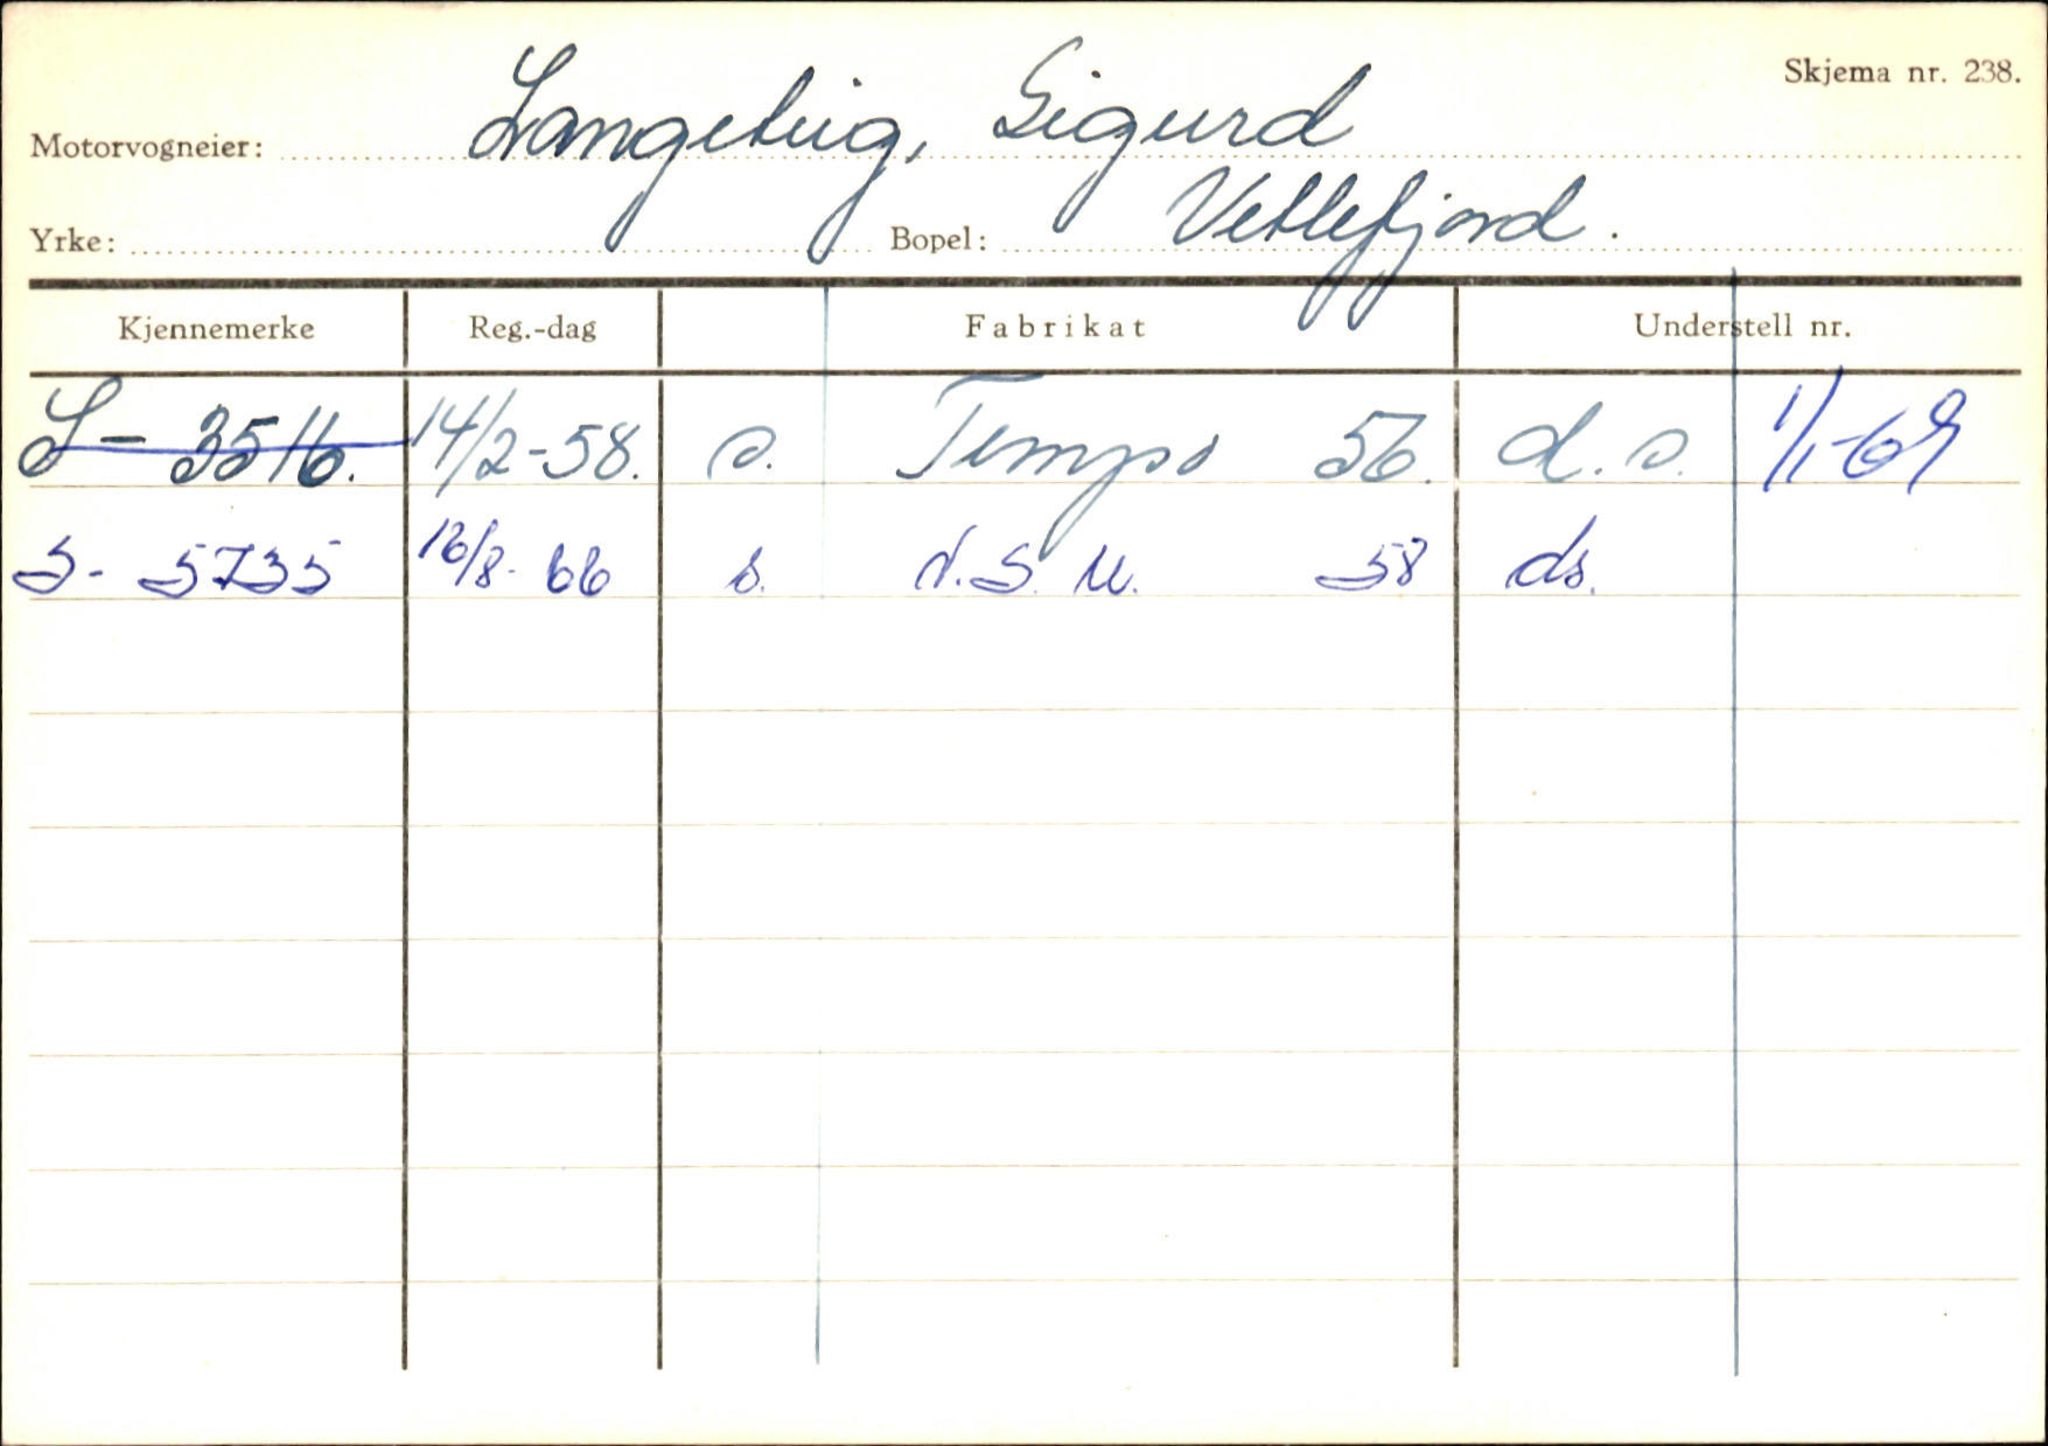 Skjema nr. 238.
Motorvogneier: Langeteig, Sigurd
Yrke: Bopel: Vetlefjord.
Kjennemerke Reg.-dag Fabrikat Understell nr.
S- 3516. 14/2-58. s. Tempo 56. d.s. 1/1-69
S- 5735 16/8- 66 s. N.S.U. 58 ds.